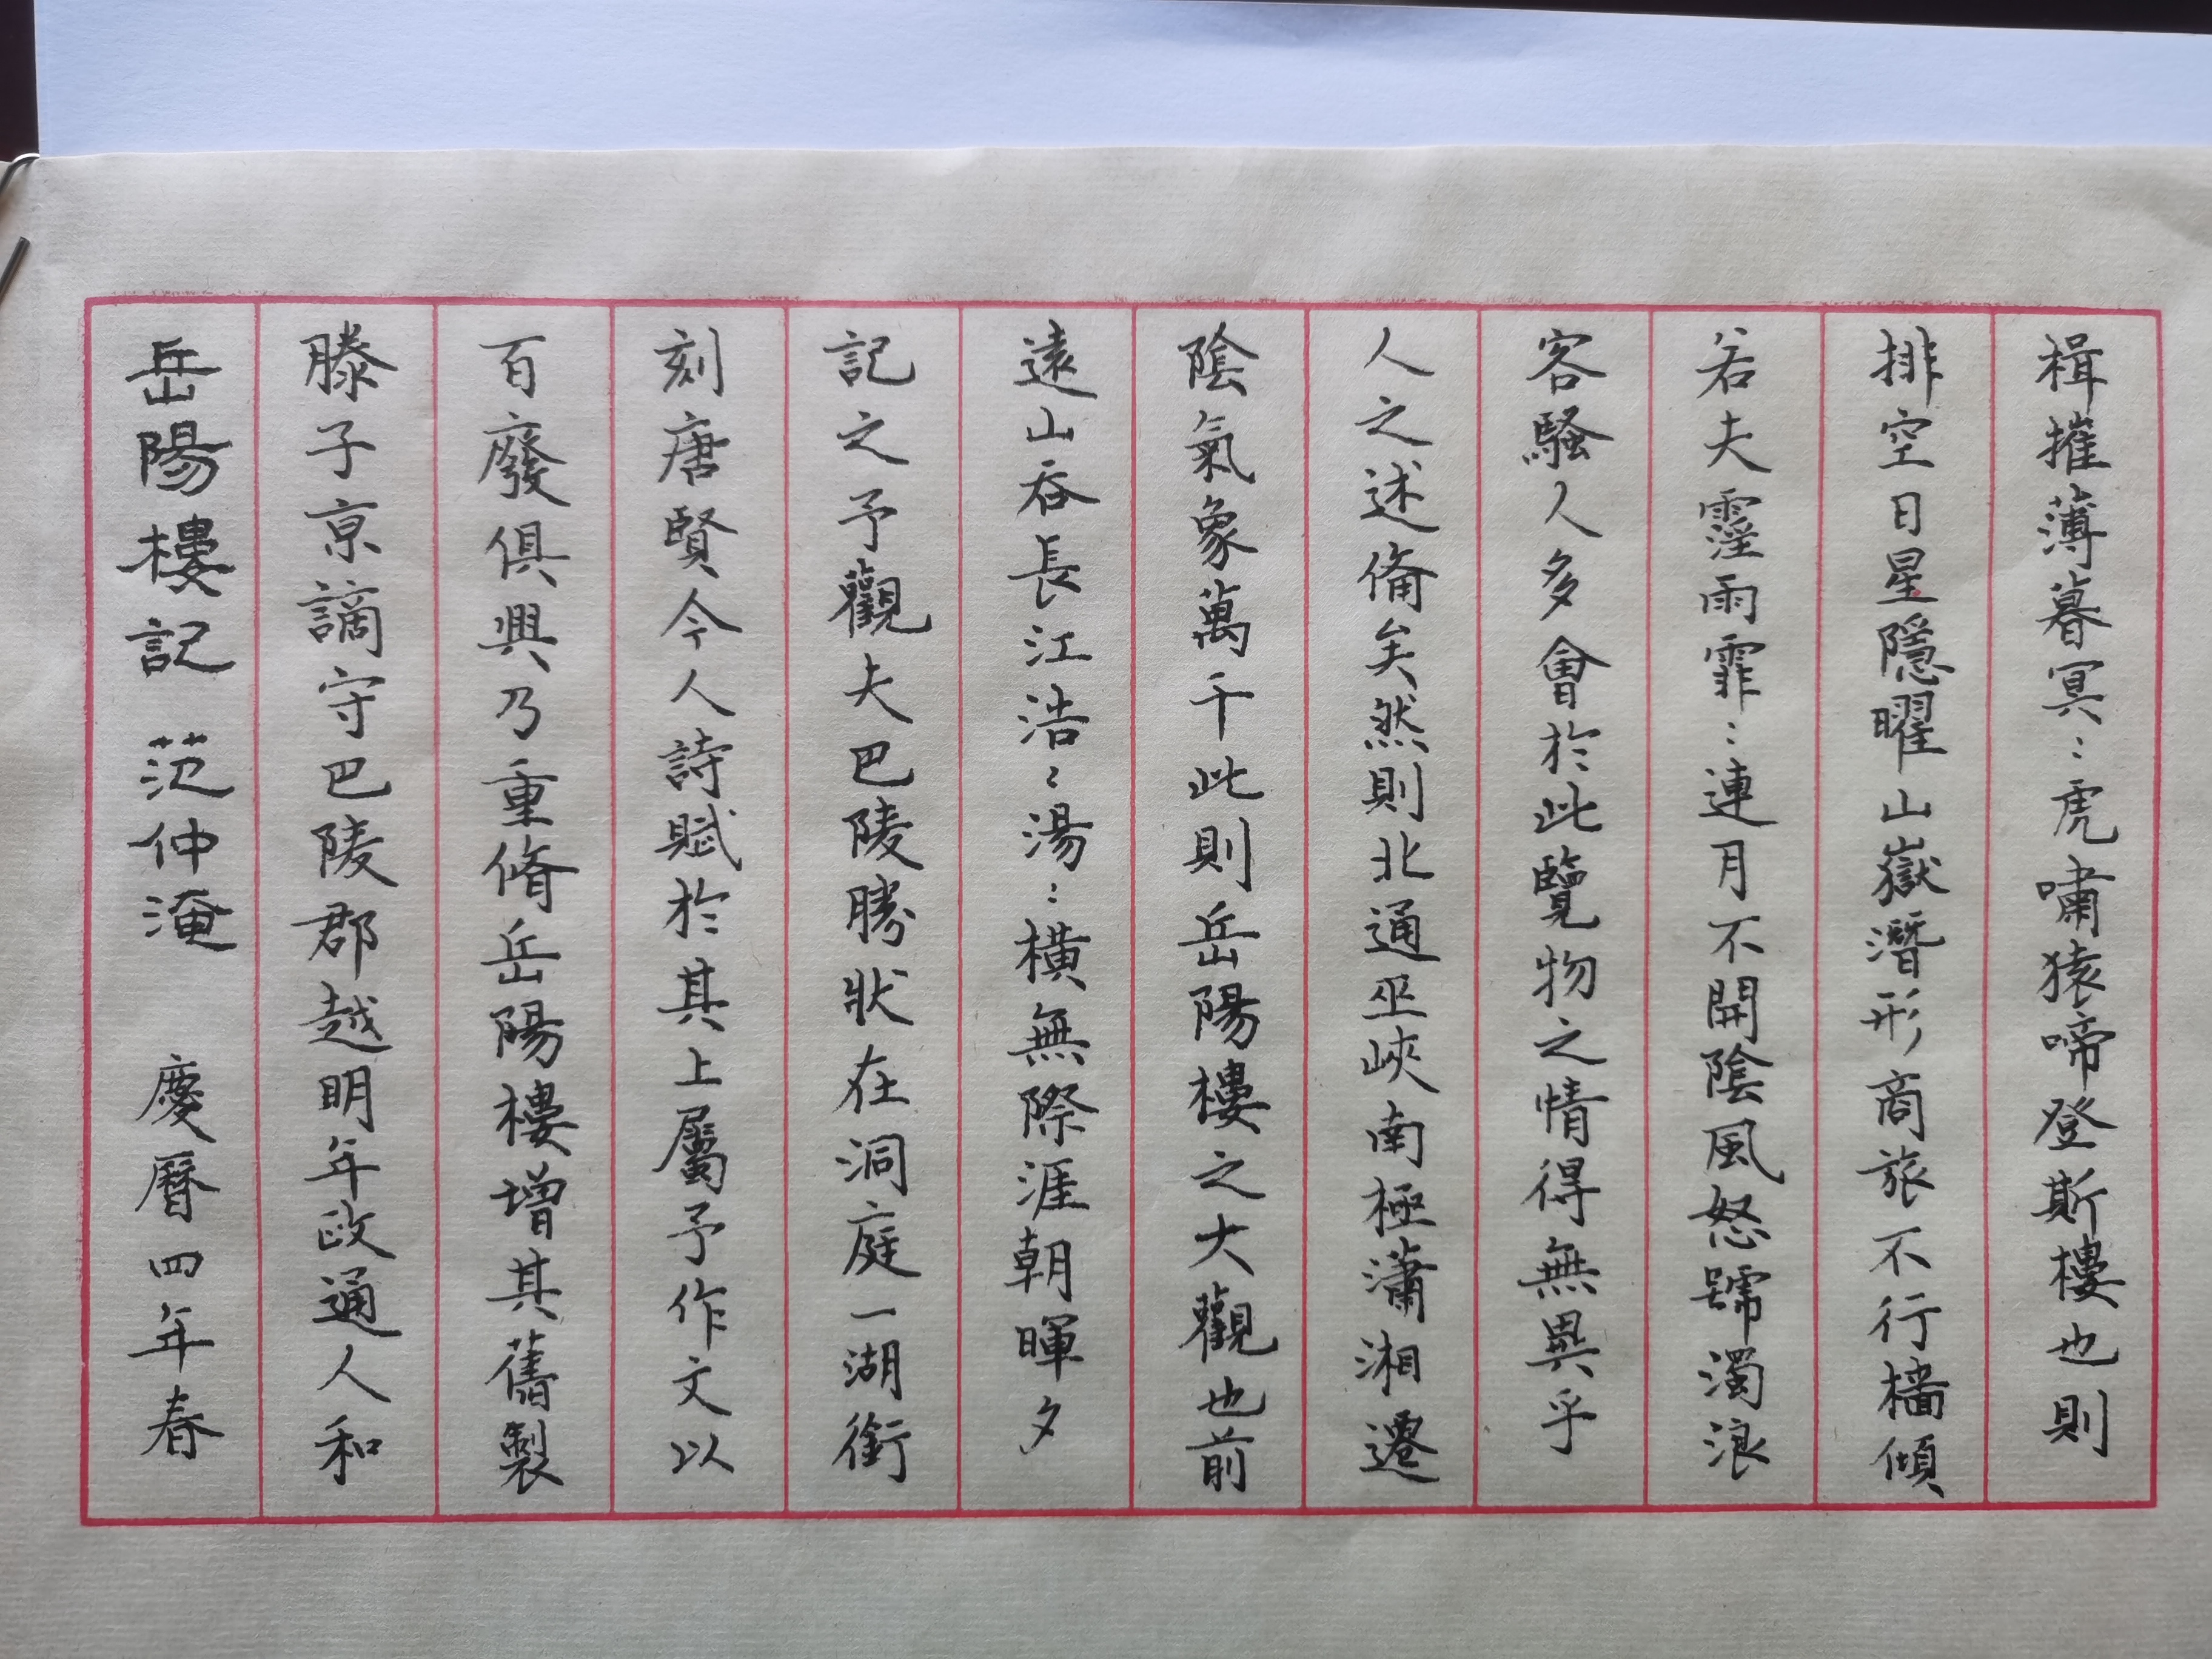 岳陽樓記 范仲淹 慶曆四年春
滕子京謫守巴陵郡越明年政通人和
百廢俱興乃重脩岳陽樓增其舊製
刻唐賢今人詩賦於其上屬予作文以
記之予觀夫巴陵勝狀在洞庭一湖銜
遠山吞長江浩〻湯〻橫無際涯朝暉夕
陰氣象萬千此則岳陽樓之大觀也前
人之述備矣然則北通巫峽南極瀟湘遷
客騷人多會於此覽物之情得無異乎
若夫霪雨霏〻連月不開陰風怒號濁浪
排空日星隱曜山嶽潛形商旅不行檣傾
楫摧薄暮冥〻虎嘯猿啼登斯樓也則